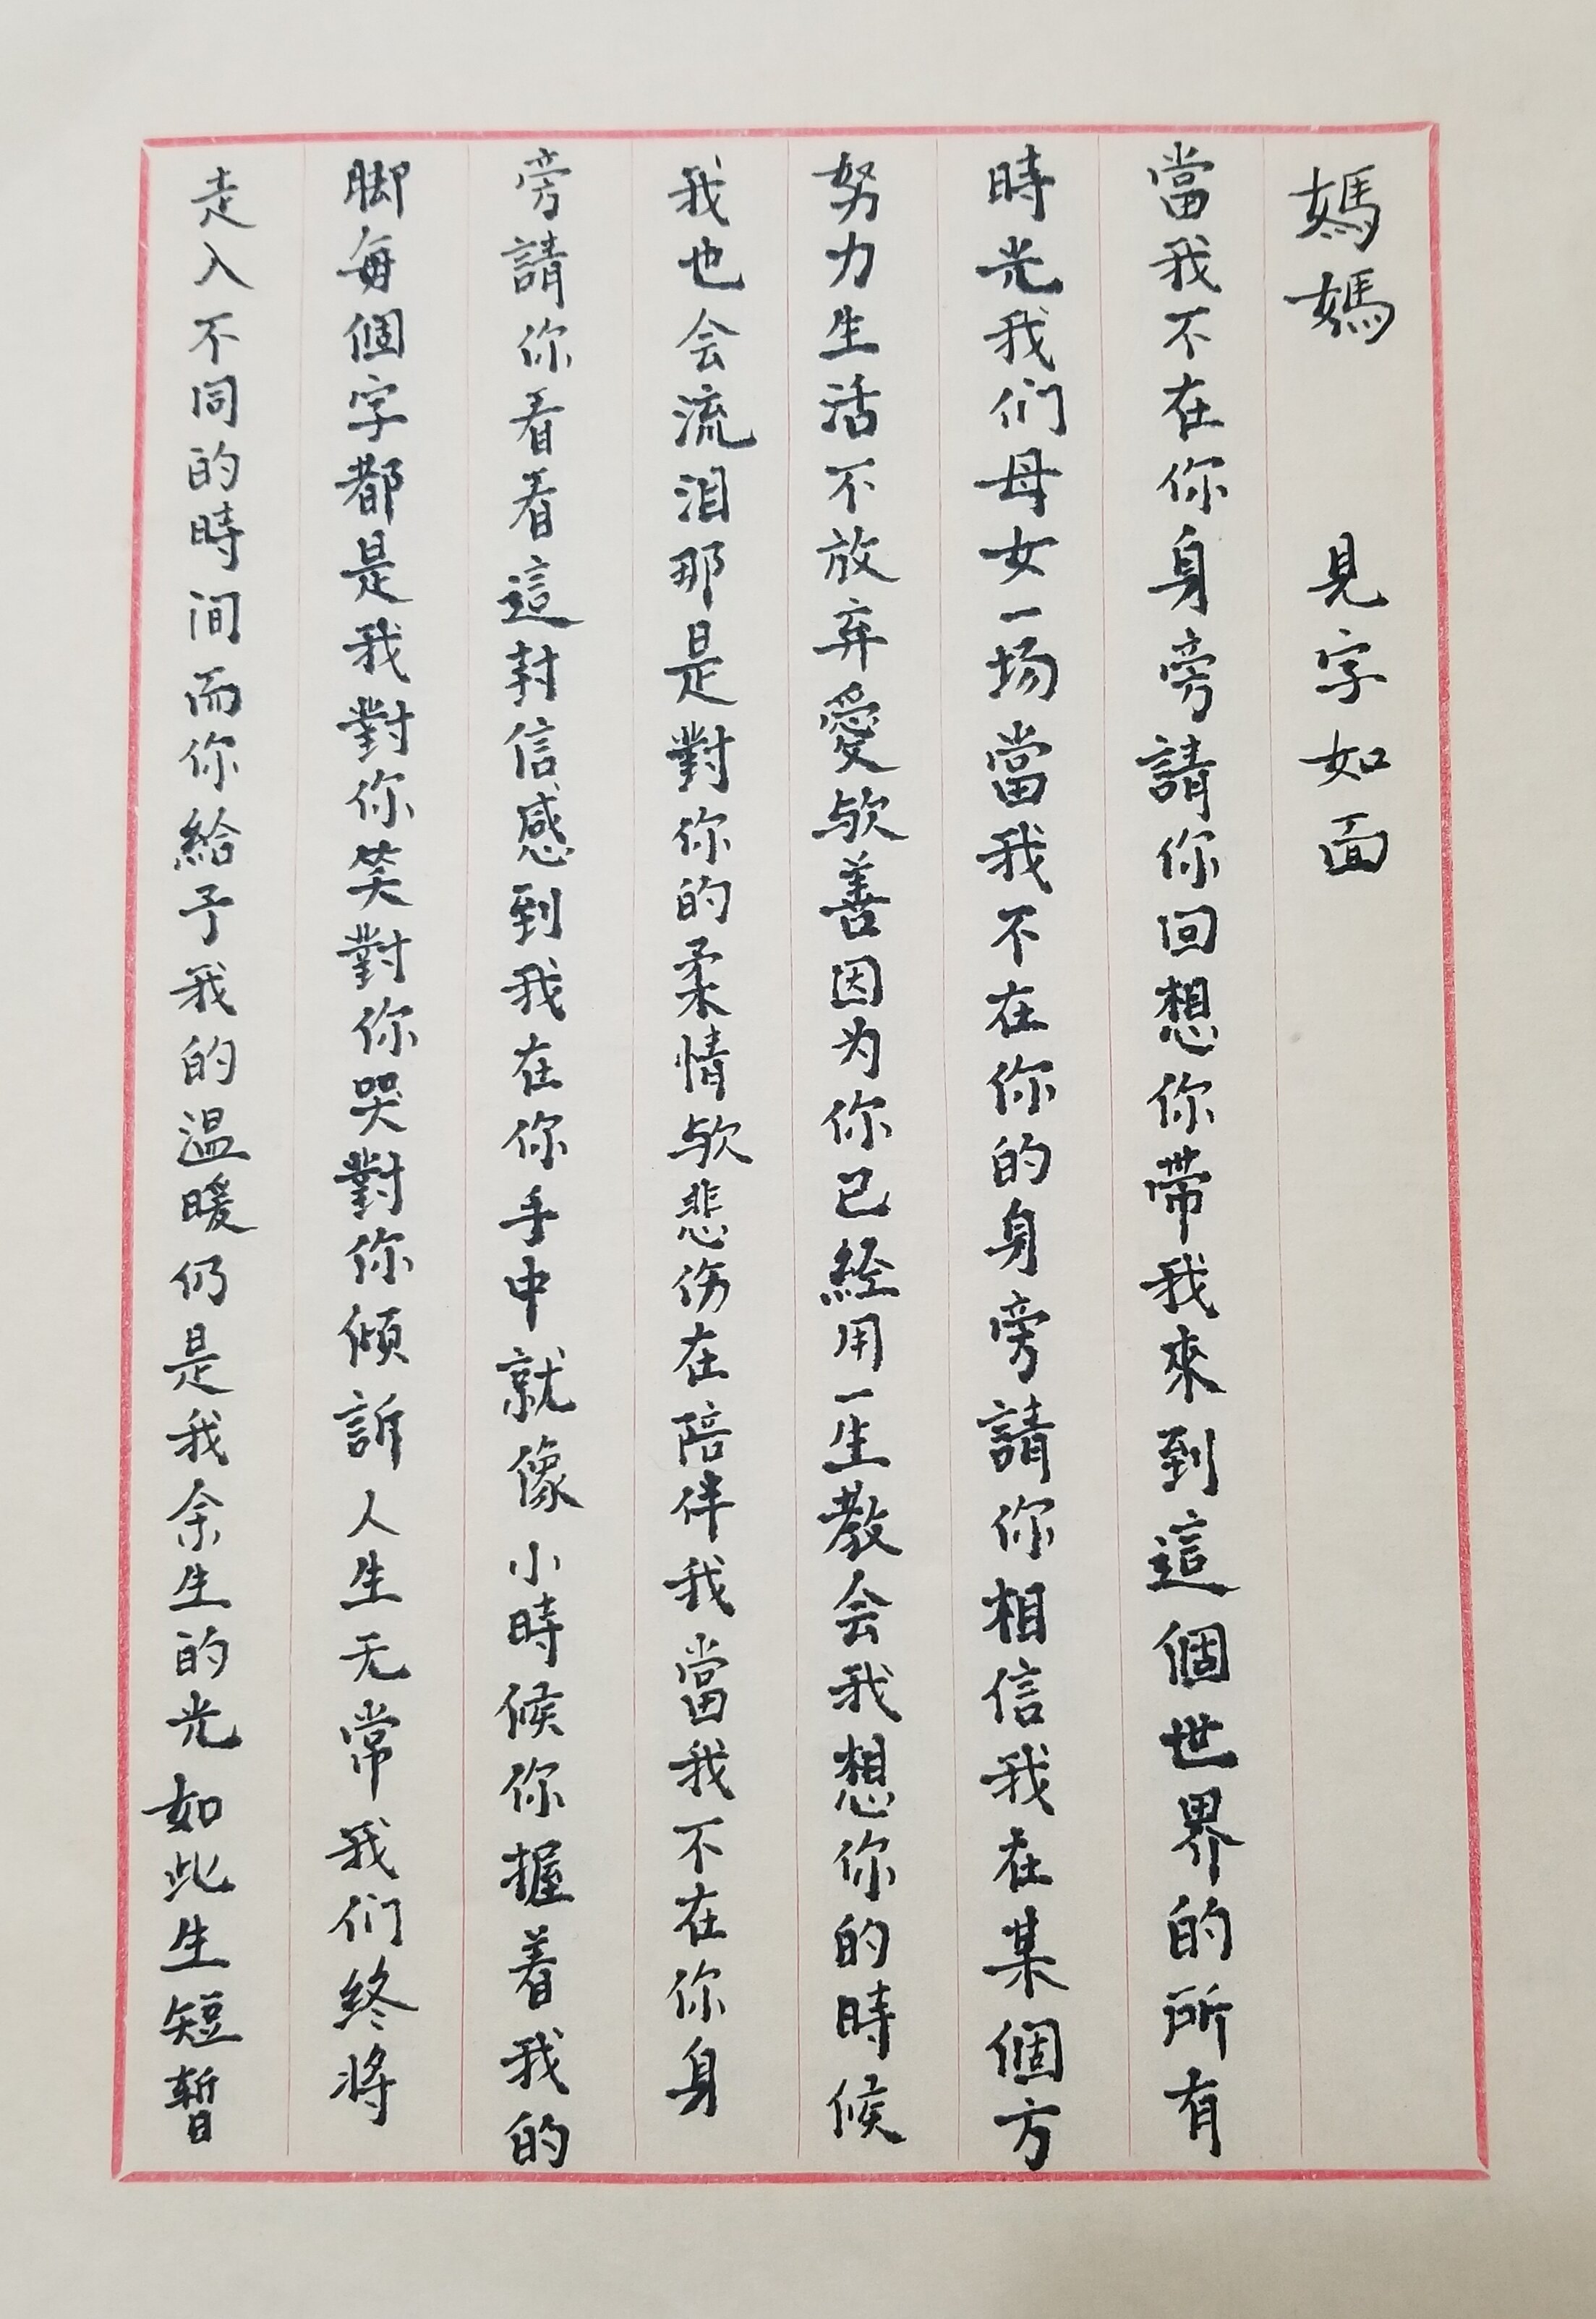 媽媽 見字如面
當我不在你身旁請你回想你带我來到這個世界的所有
時光我们母女一场當我不在你的身旁請你相信我在某個方
努力生活不放弃愛欤善因为你已經用一生教会我想你的時候
我也会流泪那是對你的柔情欤悲伤在陪伴我當我不在你身
旁請你看看這封信感到我在你手中就像小時候你握着我的
脚每個字都是我對你笑對你哭對你傾訴人生无常我们終将
走入不同的時间而你給予我的温暖仍是我余生的光如此生短暫